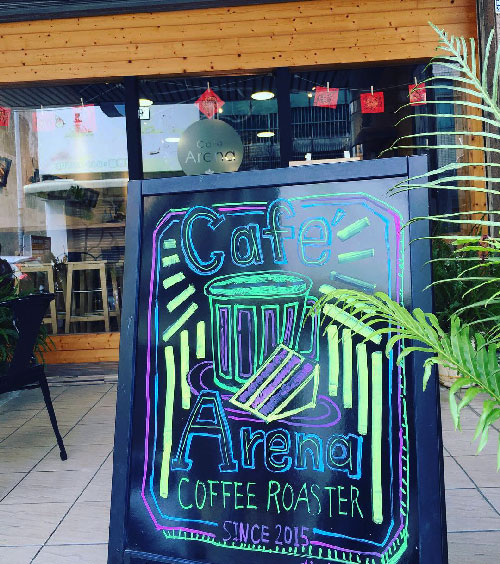 Café
Arena
Café
Arena
COFFEE ROASTER
SINCE 2015